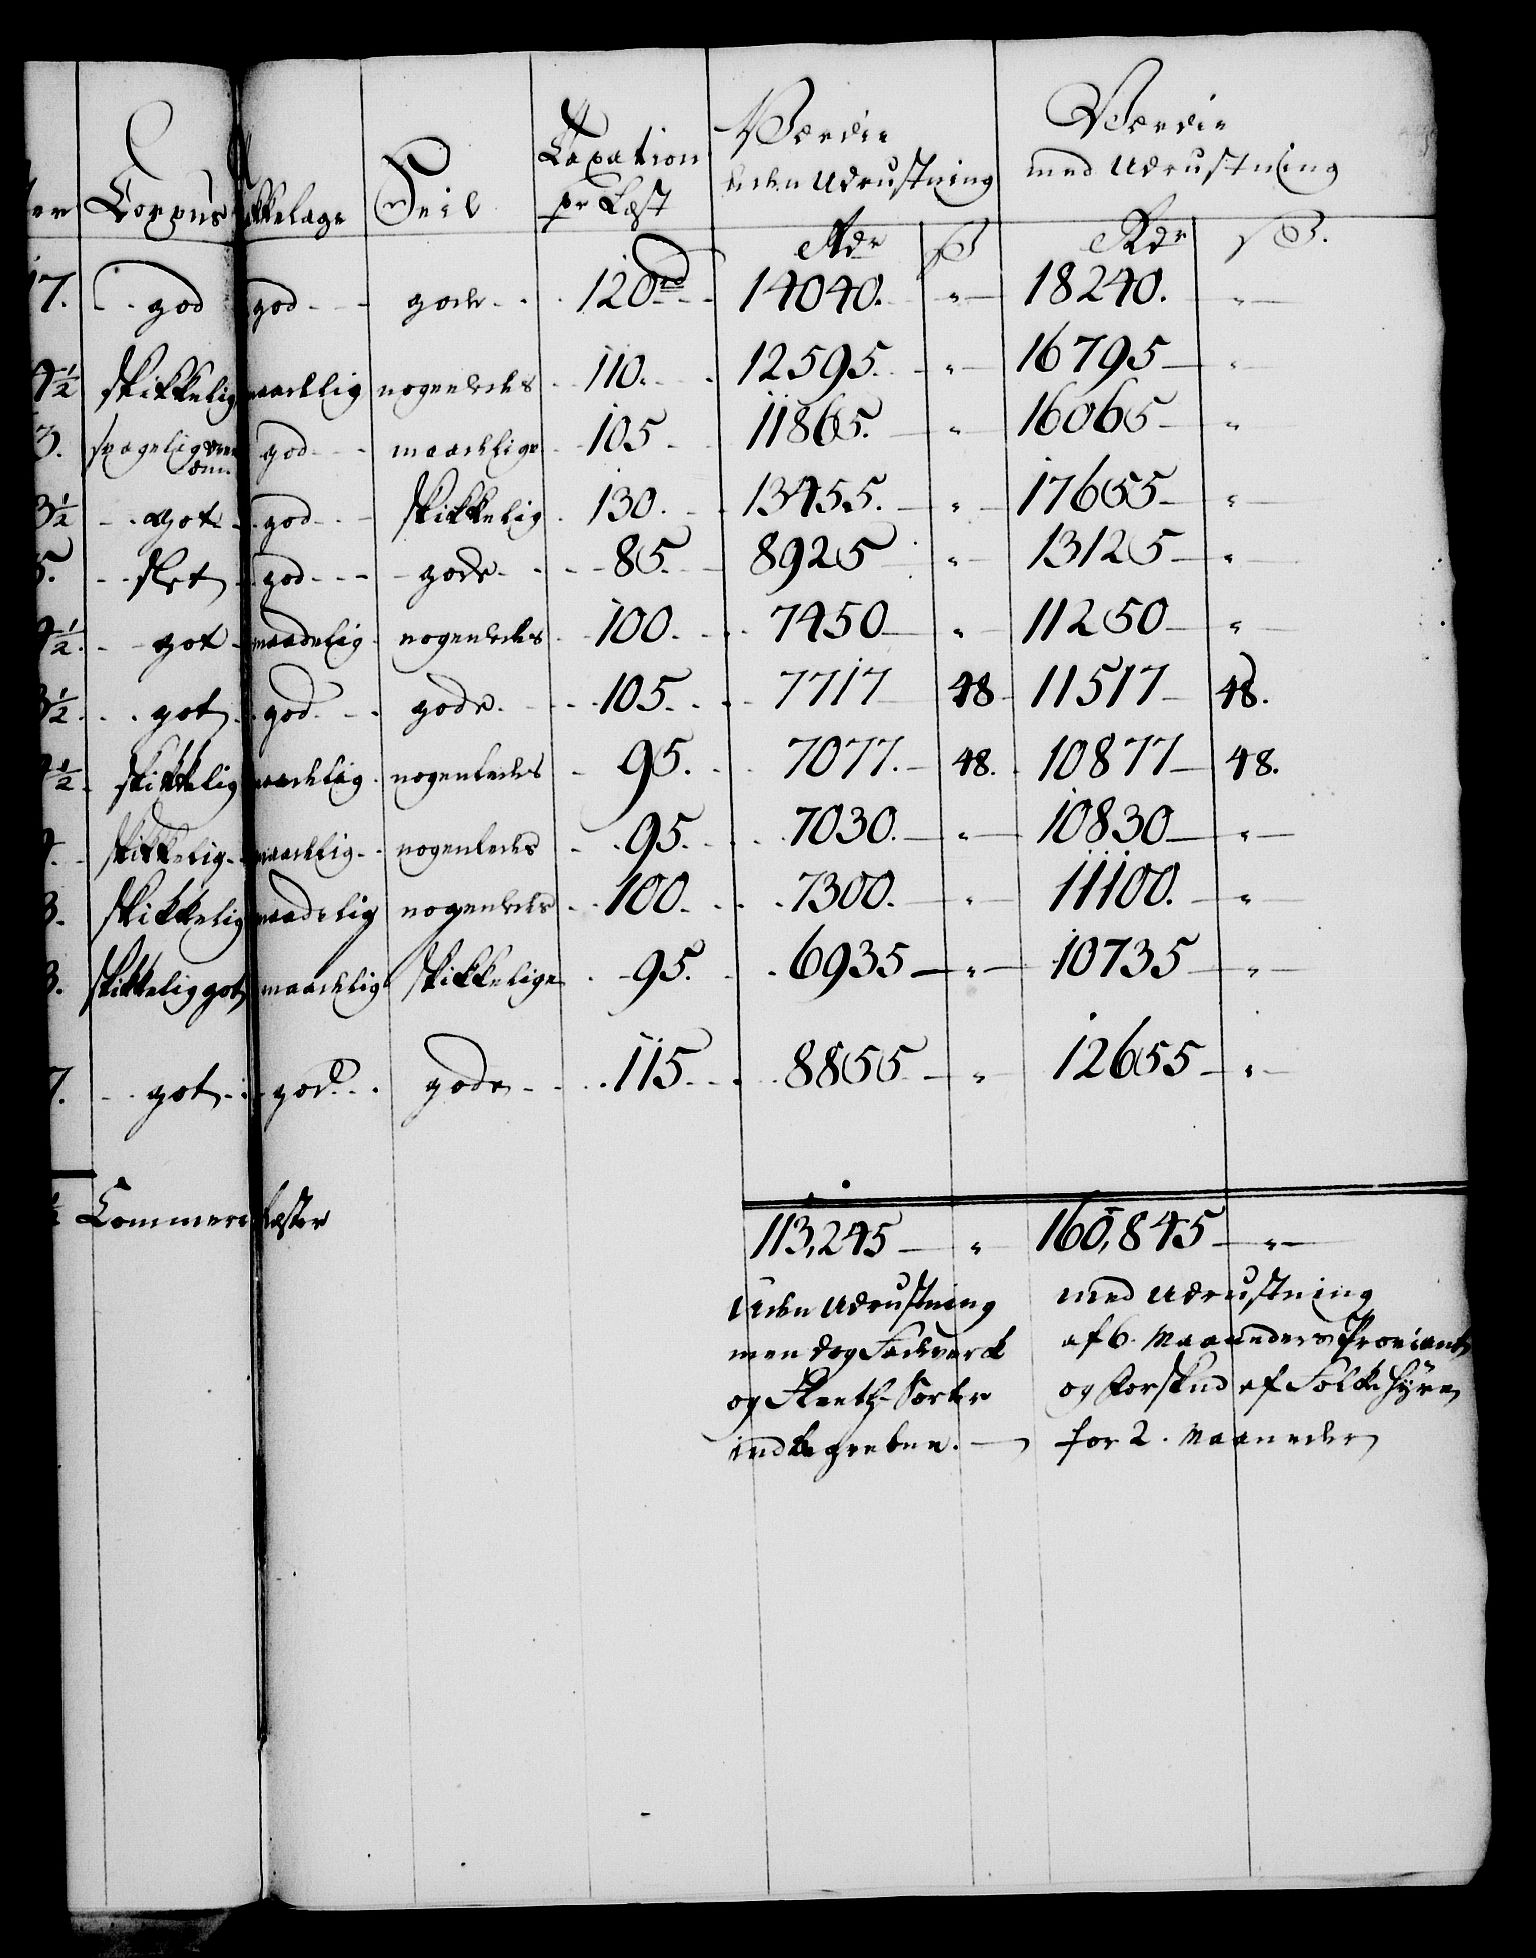 Corpus | kkelage | Seil | Taxation pr Læst | Værdie uden Udrustning | Værdie med Udrustning
Rdr | ß | Rdr | ß.
17. | god | god | gode | 120 rd | 14040. | " | 18240. | "
4½ | skikkelig | maadelig | nogenledes | 110. | 12595. | " | 16795 | "
3. | god | maadelige | 105 | 11865. | " | 16065 | "
3½ | got | god | skikkelig | 130. | 13455. | " | 17655 | "
5. | slet | god | gode | 85. | 8925 | " | 13125 | "
4½ | got | maadelig | nogenledes | 100. | 7450 | " | 11250 | "
3½ | got | god | gode | 105. | 7717 | 48 | 11517 | 48.
4½ | skikkelig | maadelig | nogenledes | 95. | 7077. | 48. | 10877 | 48.
4. | skikkelig | maadelig | nogenledes | 95. | 7030. | " | 10830 | "
3. | skikkelig | maadelig | nogenledes | 100. | 7300. | " | 11100. | "
3. | skikkelig got | maadelig | skikkelige | 95. | 6935 | " | 10735 | "
7. | got | god | gode | 115 | 8855 | " | 12655 | "
½ Commerce Læster | 113,245 | " | 160,845 | "
Uden Udrustning | med Udrustning
men dog | af 6. Maaneders Proviant
og | og Forskud af Folcke Hÿre
indbegreben. | for 2. Maaneder